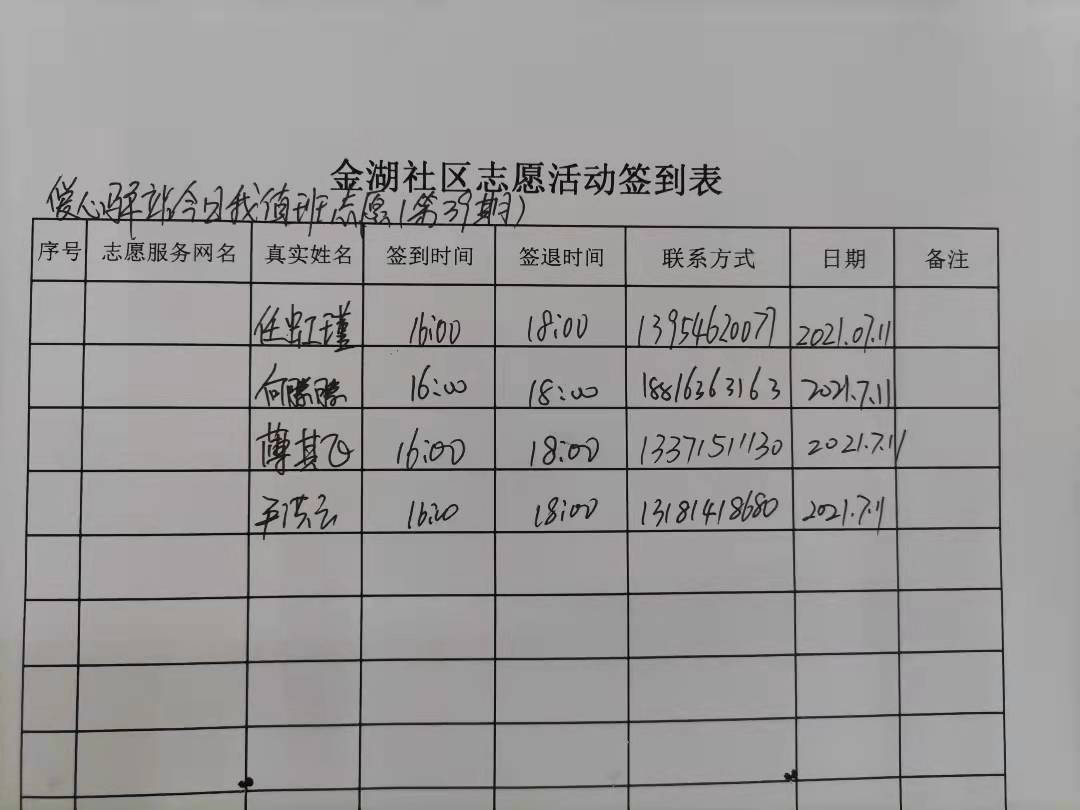 金湖社区志愿活动签到表
爱心驿站今日我值班志愿(第39期)
序号 志愿服务网名 真实姓名 签到时间 签退时间 联系方式 日期 备注
任红瑾 16:00 18:00 13954620077 2021.07.11
何鹏鹏 16:00 18:00 18816363163 2021.7.11
薄其飞 16:00 18:00 13371511130 2021.7.11
洪云 16:00 18:00 13181418680 2021.7.11